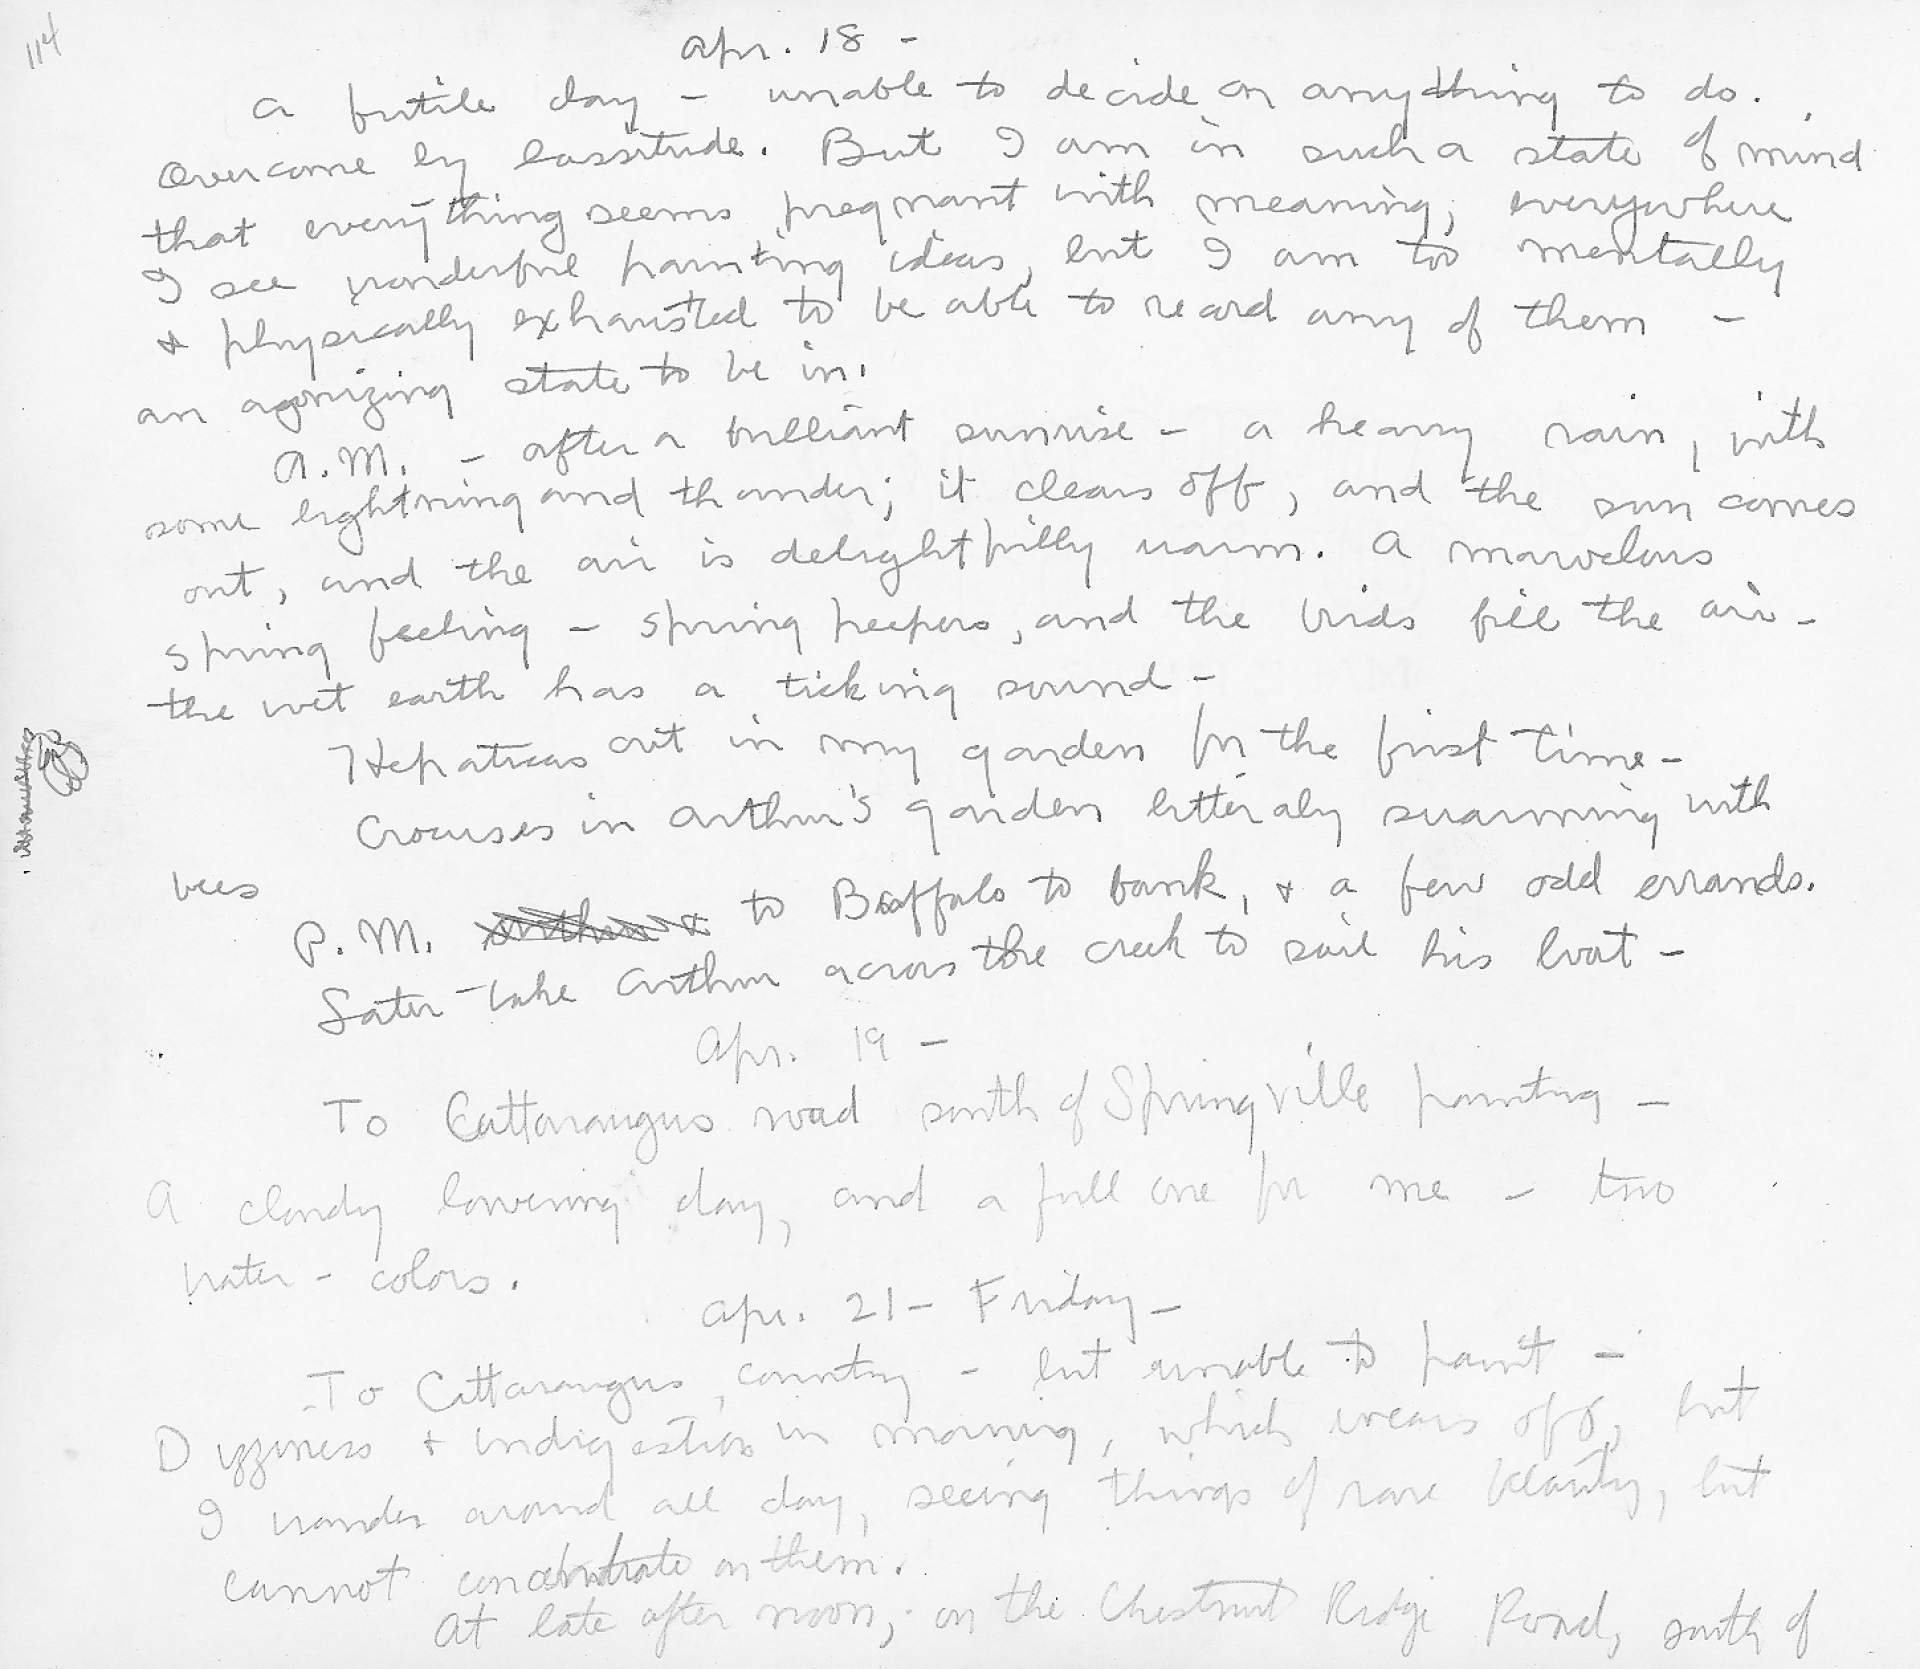 114
Apr. 18 -
A futile day - unable to decide on anything to do.
Overcome by lassitude. But I am in such a state of mind
that everything seems pregnant with meaning, everywhere
I see wonderful painting ideas, but I am too mentally
& physically exhausted to be able to record any of them -
an agonizing state to be in.
A.M. - after a brilliant sunrise - a heavy rain, with
some lightning and thunder; it clears off, and the sun comes
out, and the air is delightfully warm. A marvelous
spring feeling - spring peepers, and the birds fill the air -
the wet earth has a ticking sound -
Hepaticas out in my garden for the first time -
Crocuses in Arthur's garden litteraly swarming with
bees
P.M. Arthur & to Buffalo to bank, & a few odd errands.
Later take Arthur across the creek to sail his boat -
Apr. 19 -
To Cattaraugus road south of Springville painting -
A cloudy lowering day, and a full one for me - two
water-colors.
Apr. 21 - Friday -
To Cattaraugus, country - but unable to paint -
Dizziness & indigestion in morning, which wears off, but
I wander around all day, seeing things of rare beauty, but
cannot concentrate on them.
At late after noon, on the Chestnut Ridge Road, south of